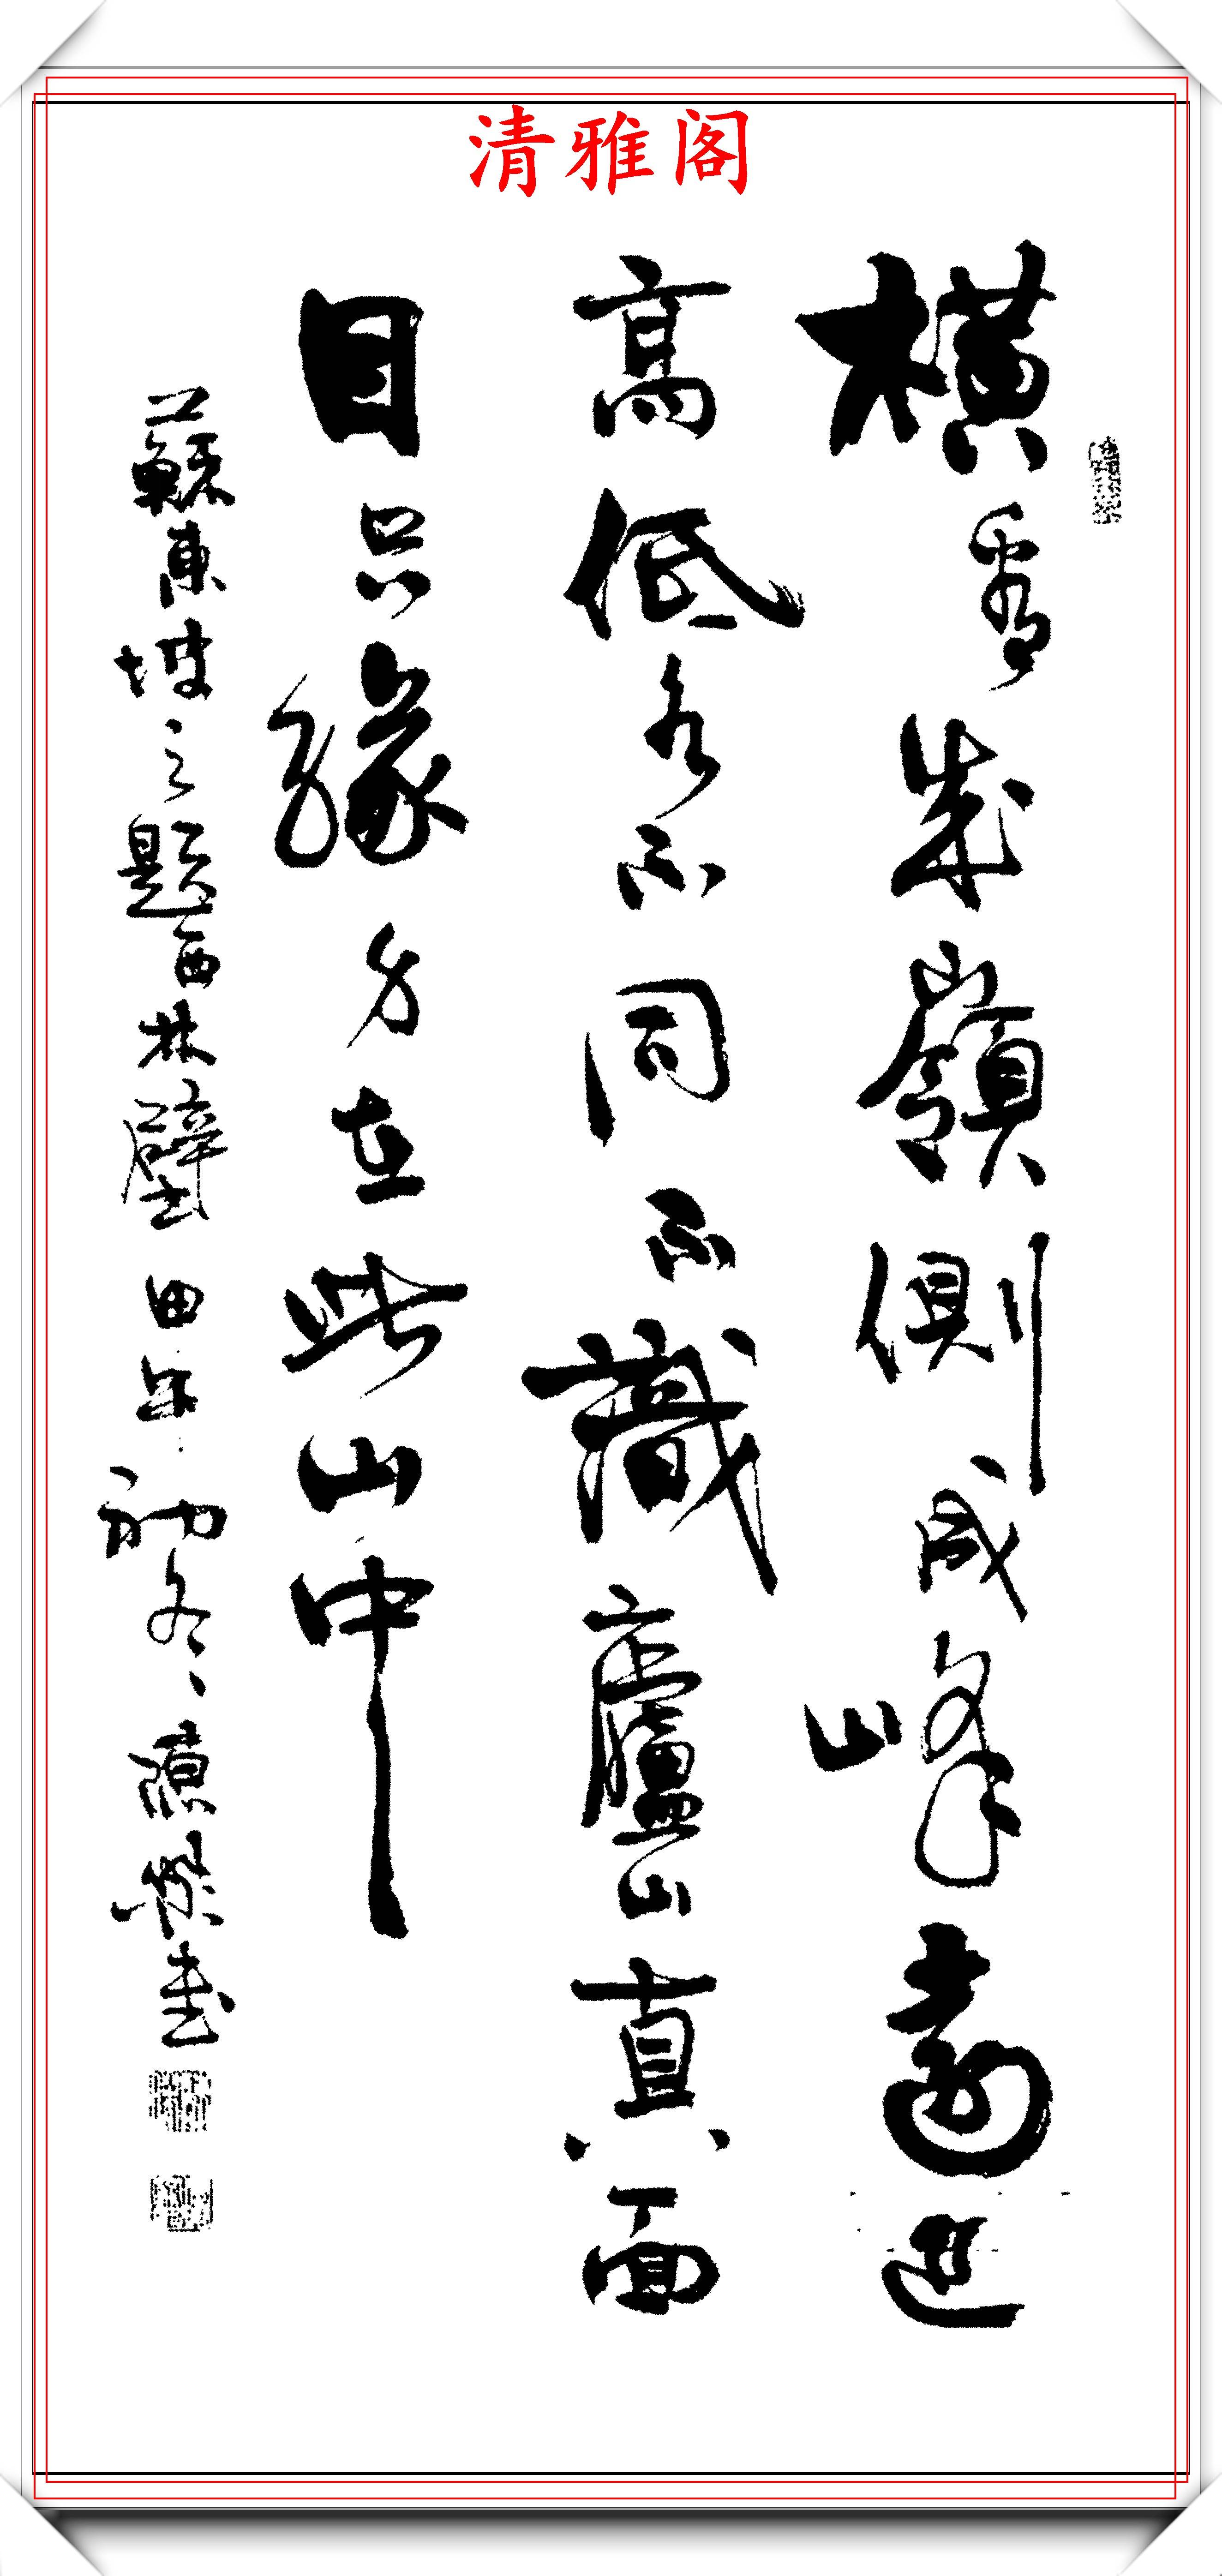 清雅阁
橫看成嶺側成峰遠近
高低各不同不識廬山真面
目只緣身在此山中
蘇東坡之題西林壁 甲午初冬 書